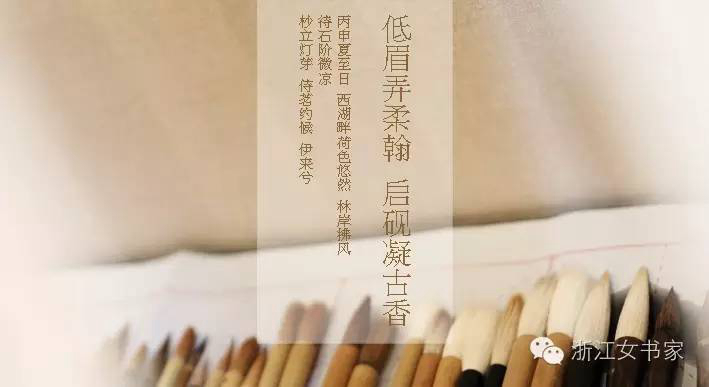 低眉弄柔翰 启砚凝古香
丙申夏至日 西湖畔荷色悠然 林岸拂风
待石阶微凉
杪立灯芽 侍茗约候 伊来兮
浙江女书家